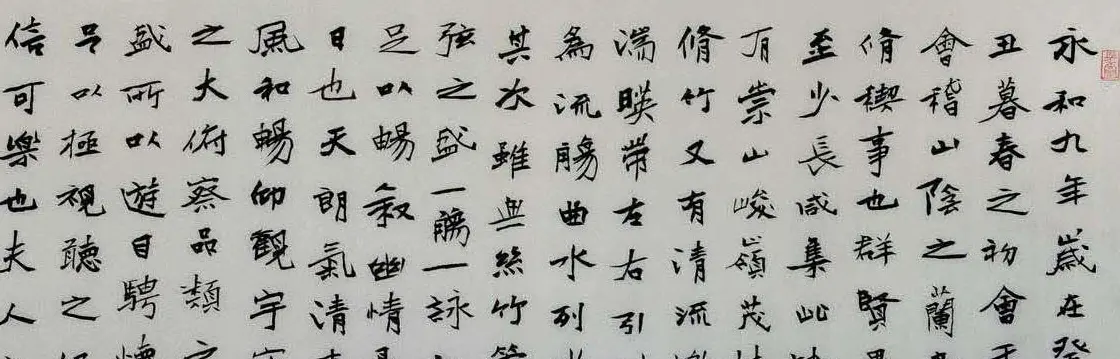 永和九年歲在癸
丑暮春之初會于
會稽山陰之蘭
脩稧事也群賢
至少長咸集此
有崇山峻嶺茂
脩竹又有清流
湍暎帶左右引
為流觴曲水列
其次雖無絲竹
弦之盛一觴一詠
足以暢叙幽情
日也天朗氣清
風和暢仰觀宇
之大俯察品類之
盛所以遊目騁懷
足以極視聽之
信可樂也夫人